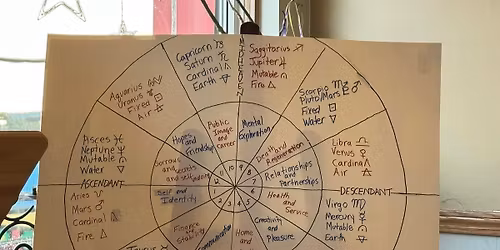 Capricorn ♑
Saturn ♄
Cardinal △
Earth 🜃
MIDHEAVEN
Saggitarius ♐
Jupiter ♃
Mutable
Fire △
Aquarius ♒
Uranus ♅
Fixed □
Air 🜁
Scorpio ♏
Pluto/Mars ♇ ♂
Fixed □
Water ▽
Public
Image
and
career
Mental
Exploration
Hopes
and
Friendship
Death and
Regeneration
Pisces ♓
Neptune ♆
Mutable
Water ▽
Sorrows
and
Libra ♎
Venus ♀
Cardinal △
Air 🜁
Relationships
and
Partnerships
ASCENDANT
DESCENDANT
Self and
Identity
Health
and
Service
Aries ♈
Mars ♂
Cardinal △
Fire △
Virgo ♍
Mercury ☿
Mutable
Earth 🜃
Finance
Stability
Communication
Home
and
Creativity
and
Pleasure
10
9
8
7
6
5
4
3
2
1
12
11
Taurus